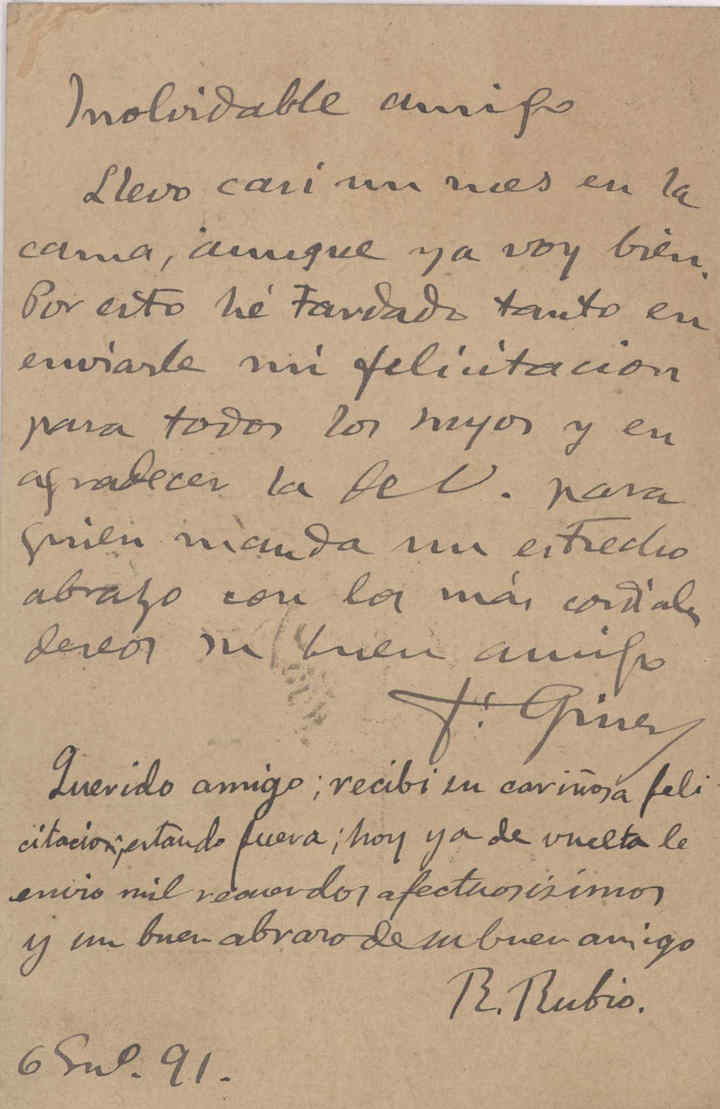 Inolvidable amigo
Llevo casi un mes en la
cama, aunque ya voy bien.
Por esto hé tardado tanto en
enviarle mi felicitacion
para todos los suyos y en
agradecer la de V. para
quien manda un estrecho
abrazo con los más cordiales
deseos su buen amigo
F. Giner
Querido amigo; recibi su cariñosa feli-
citacion, estando fuera; hoy ya de vuelta le
envio mil recuerdos afectuosisimos
y un buen abrazo de su buen amigo
R. Rubio.
6 En°. 91.